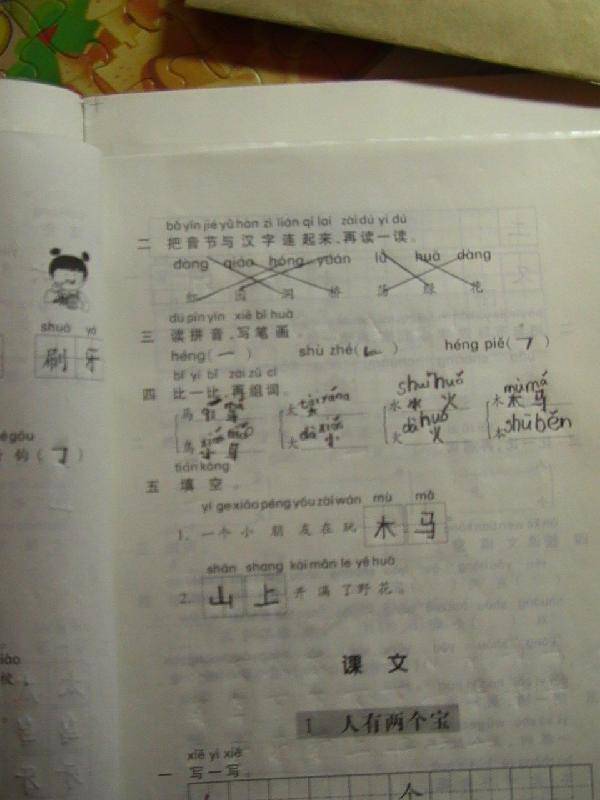 bǎ yīn jié yǔ hàn zì lián qǐ lai zài dú yì dú
二 把音节与汉字连起来,再读一读。
dòng qiáo hóng yuán lǜ huā dàng
红 园 洞 桥 荡 绿 花
dú pīn yīn xiě bǐ huà
三 读拼音,写笔画。
héng(一) shù zhé( ) héng piě(㇇)
bǐ yì bǐ zài zǔ cí
四 比一比,再组词。
shuǐ huǒ mù mǎ
马 太 tài yáng 水 水 火 木 木 马
鸟 小鸟 大 dà xiǎo 小 火 dà huǒ 火 本 shū běn
tián kòng
五 填空。
yí ge xiǎo péng yǒu zài wán mù mǎ
1. 一个小朋友在玩 木 马
shān shang kāi mǎn le yě huā
2. 山 上 开满了野花。
课 文
1 人有两个宝
xiě yi xiě
一 写一写。
个
shuā yá
刷 牙